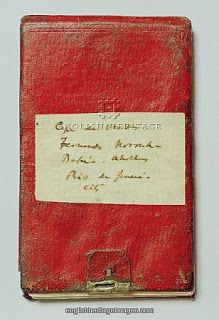 ENGLISH HERITAGE
Fernando Noronha
Bahia - Abrolhos
Rio de Janeiro
City
englishheritageimages.com